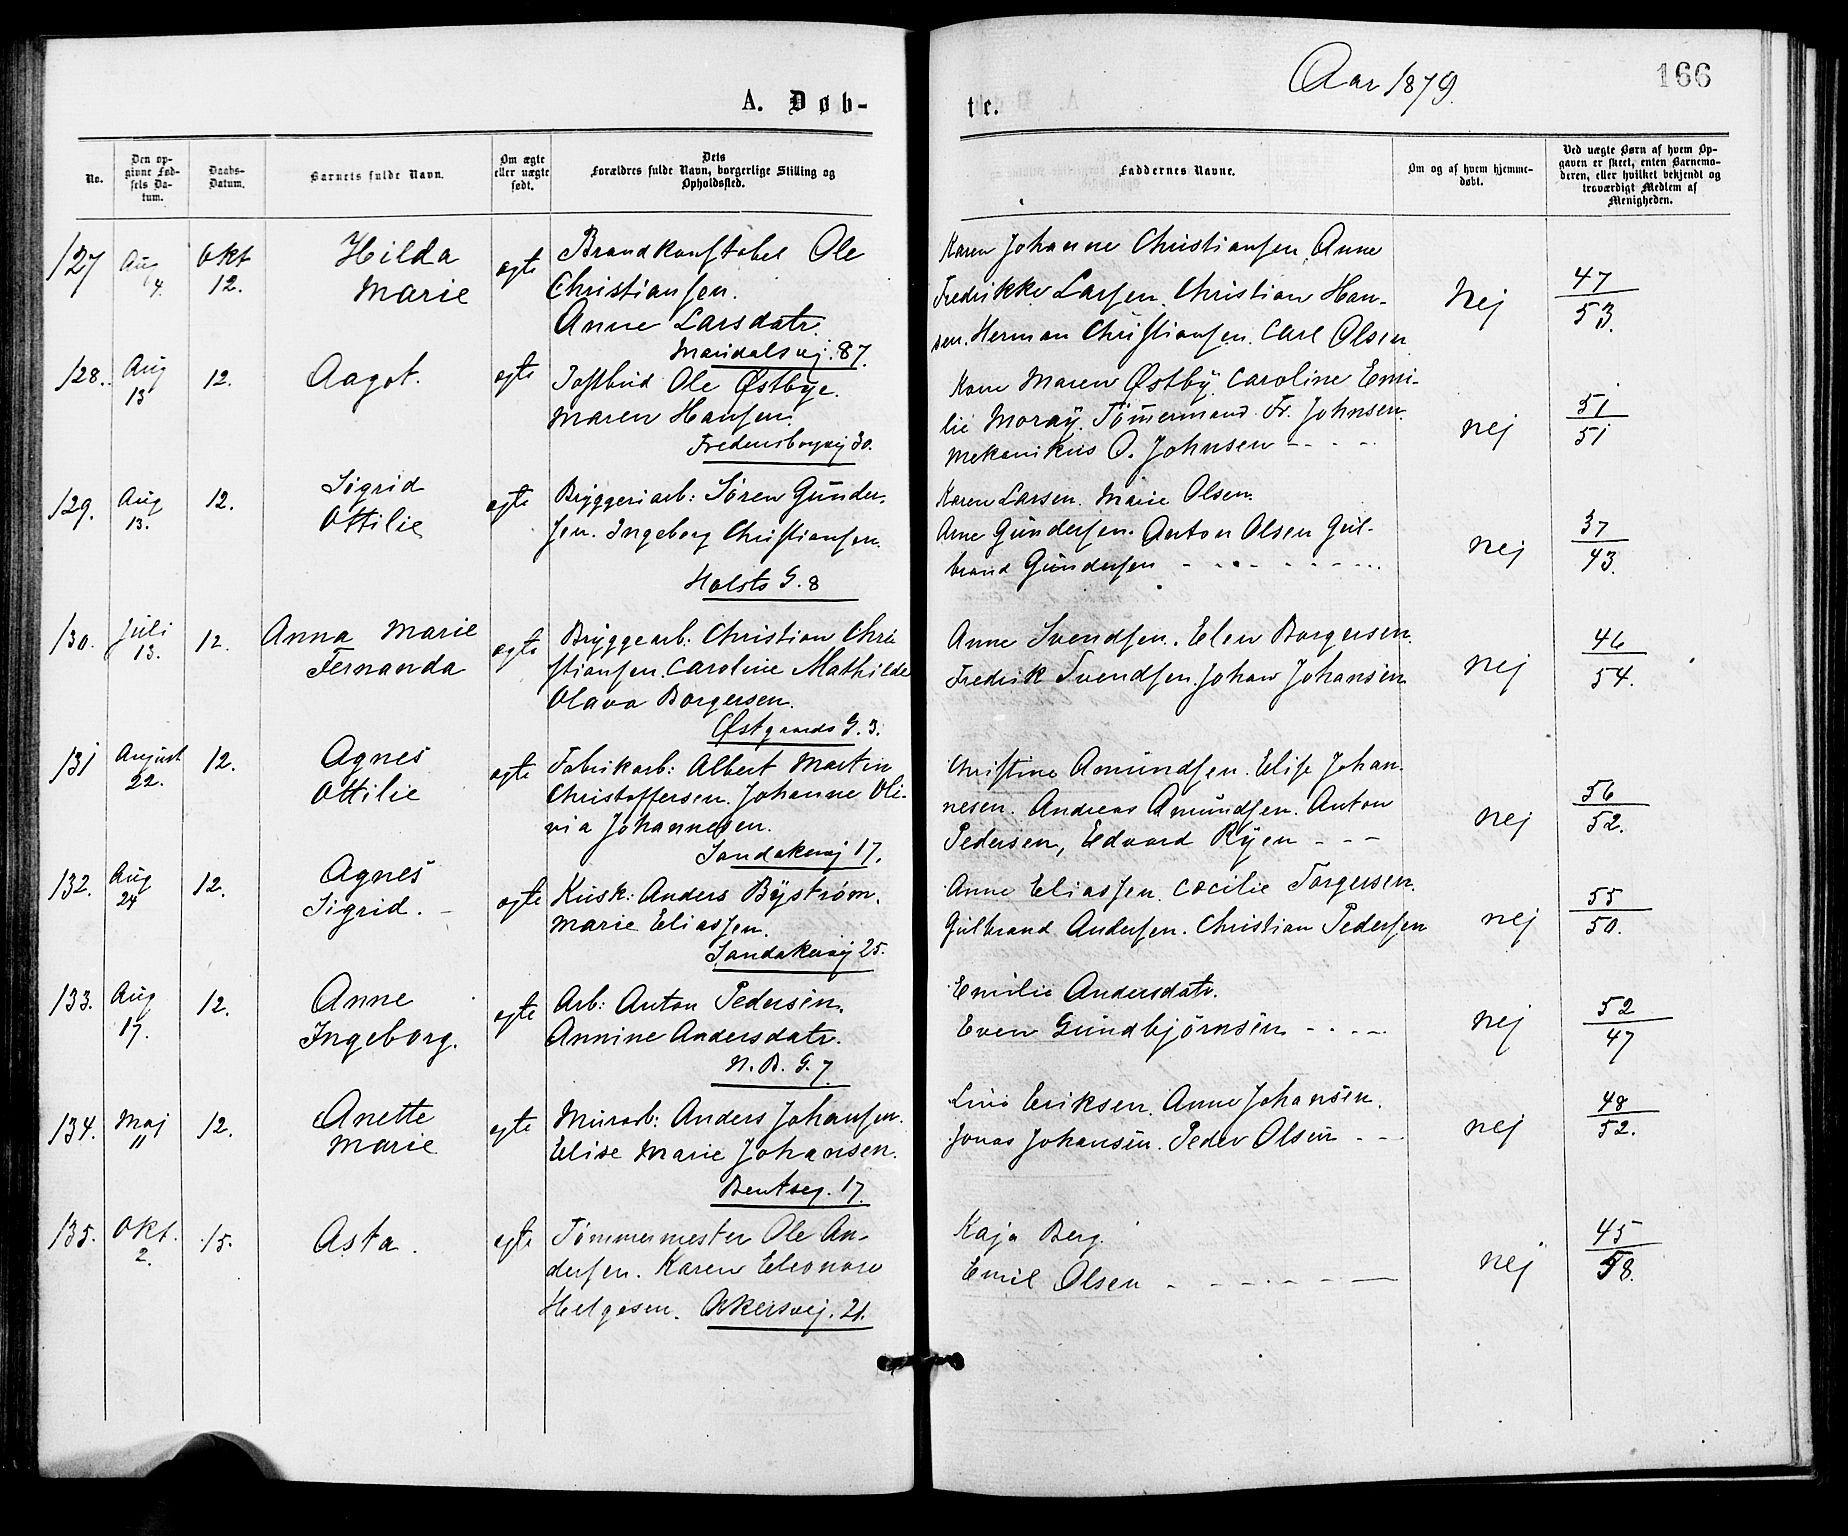 Aar 1879.
166
A. Døb-
te.
No.
Den op-
givne Fød-
sels Da-
tum.
Daabs-
Datum.
Barnets fulde Navn.
Om ægte
eller uægte
født.
Dets
Forældres fulde Navn, borgerlige Stilling og
Opholdssted.
Faddernes Navne.
Om og af hvem hjemme-
døbt.
Ved uægte Børn af hvem Op-
gaven er skeet, enten Barnemo-
deren, eller hvilket bekjendt og
troværdigt Medlem af
Menigheden.
127
Aug
4.
Okt
12.
Hilda
Marie
egte
Brandkonstabel Ole
Christiansen.
Anne Larsdatr.
Maridalsvej. 87.
Karen Johanne Christiansen, Anne
Fredrikke Larsen. Christian Han-
sen. Herman Christiansen. Carl Olsen
Nej
47
53.
128.
Aug
13
12.
Aagot.
egte
Postbud Ole Østbye.
Maren Hansen.
Fredensborgvej 30.
Kone Maren Østby. Caroline Emi-
lie Moray. Tömermand Fr. Johnsen.
Mekanikus O. Johnsen - - - -
nej
51
51
129.
Aug
13.
12.
Sigrid
Ottilie
egte
Bryggeriarb: Søren Gunder-
sen. Ingeborg Christiansen.
Holsts G. 8
Karen Larsen. Marie Olsen.
Arne Gundersen. Anton Olsen Gul-
brand Gundersen - - - - - - -
nej
37
43.
130.
Juli
13.
12.
Anna Marie
Fernanda
egte
Bryggearb. Christian Chri
stiansen. Caroline Mathilde
Olava Borgersen.
Østgaards G. 3.
Anne Svendsen. Elen Borgersen.
Fredrik Svendsen. Johan Johansen
nej
46
54.
131
August
22.
12.
Agnes
Ottilie
egte
Fabrikarb: Albert Martin
Christoffersen. Johanne Oli-
via Johannesen.
Sandakervej 17.
Christine Amundsen. Elise Johan-
nesen. Andreas Amundsen. Anton
Pedersen, Edvard Ryen - - -
nej
56
52.
132.
Aug
24
12.
Agnes
Sigrid. -
egte
Kusk: Anders Byström.
Marie Eliassen.
Sandakervej 25.
Anne Eliassen. Cæcilie Torgersen.
Gulbrand Andersen. Christian Pedersen
nej
55
50.
133.
Aug
17.
12.
Anne
Ingeborg.
egte
Arb: Anton Pedersen.
Annine Andersdatr.
N. B. G. 7
Emilie Andersdatr.
Even Gundbjörnsen - - - -
nej
52
47
134.
Maj
11
12.
Anette
Marie
egte
Murarb: Anders Johansen.
Elise Marie Johansen.
Bentseg. 17.
Lina Eriksen. Anne Johansen.
Jonas Johansen. Peder Olsen - -
nej
48
52.
135.
Okt.
2.
15.
Asta.
egte
Tømmermester Ole An-
dersen. Karen Eleonore
Helgesen. Akersvej. 21.
Kaja Berg.
Emil Olsen - - - - - - -
nej
45
58.